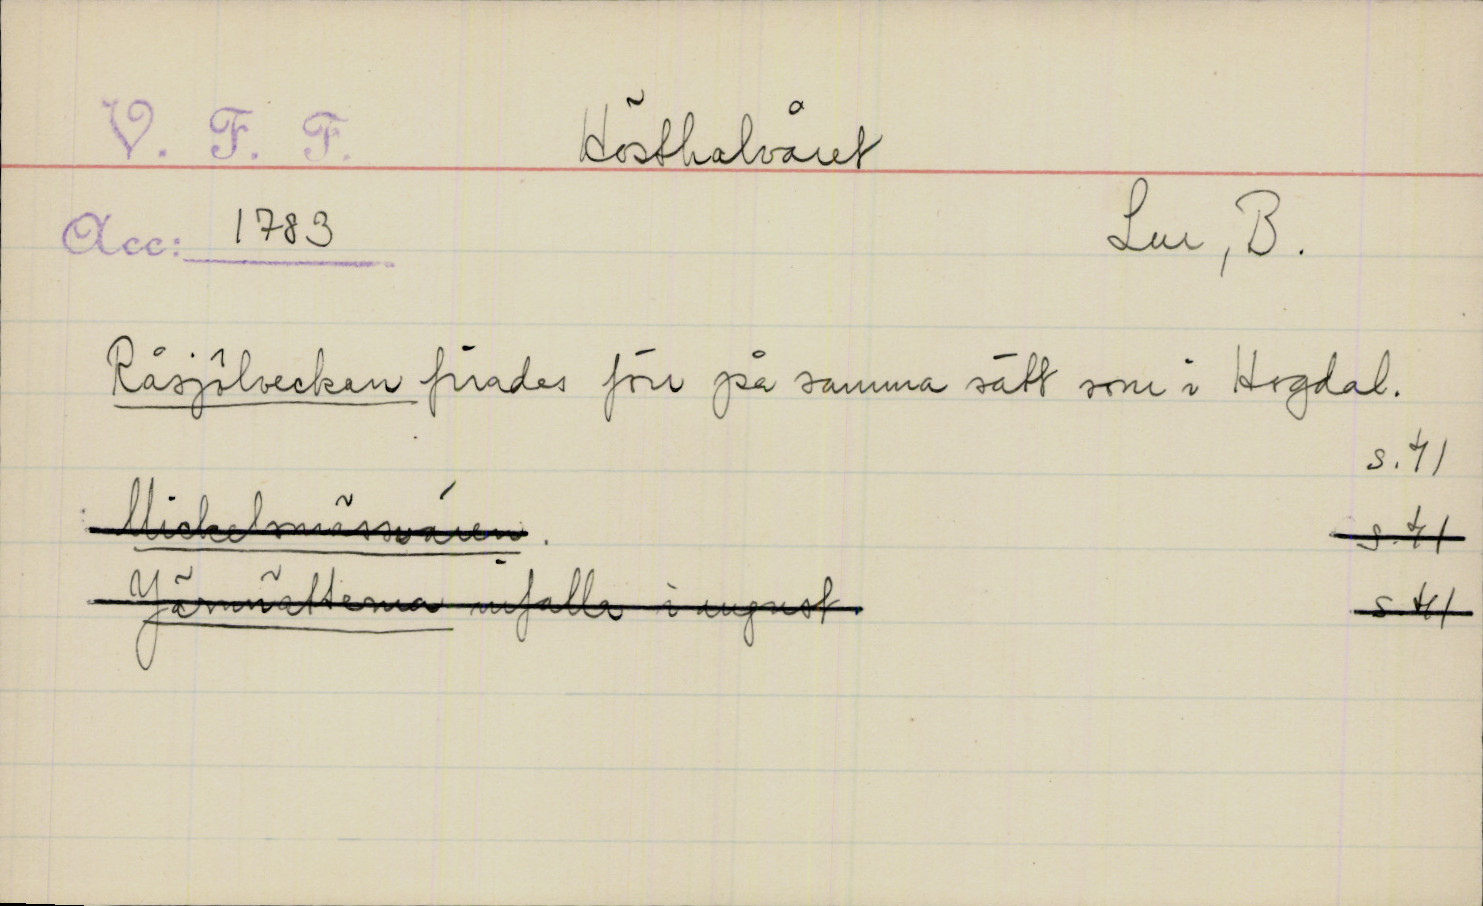 V. F. F.
Hösthalvåret
Acc: 1783
Lur, B.
Råsjölveckan firades förr på samma sätt som i Hogdal.
s. 41
Mickelsmässvåren. s. 41
Järnnätterna infalla i august. s. 41